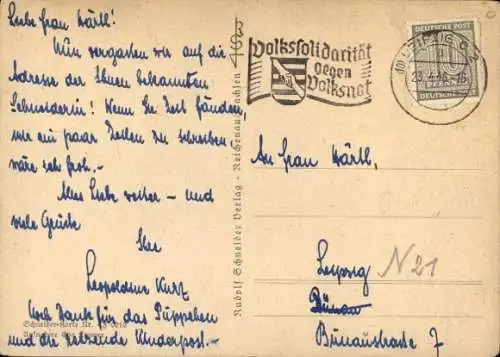 Liebe Frau Härtl!
Nun vergaßen wir auf die
Adresse der Ihnen bekannten
Schneiderin! Wenn Sie Zeit fänden,
mir ein paar Zeilen zu schreiben,
wäre ich froh. -
Alles Liebe weiter - und
viele Grüße
Ihre
Leopoldine Kurz
Noch Dank für das Püppchen
und die reizende Kinderpost. -
Schneider-Karte Nr.
Rudolf Schneider Verlag - Reichenau Sachsen
Volkssolidarität
gegen
Volksnot
LEIPZIG C 2
DEUTSCHE POST
PFENNIG
An Frau Härtl,
Leipzig N21
Dünau
Bünaustraße 7